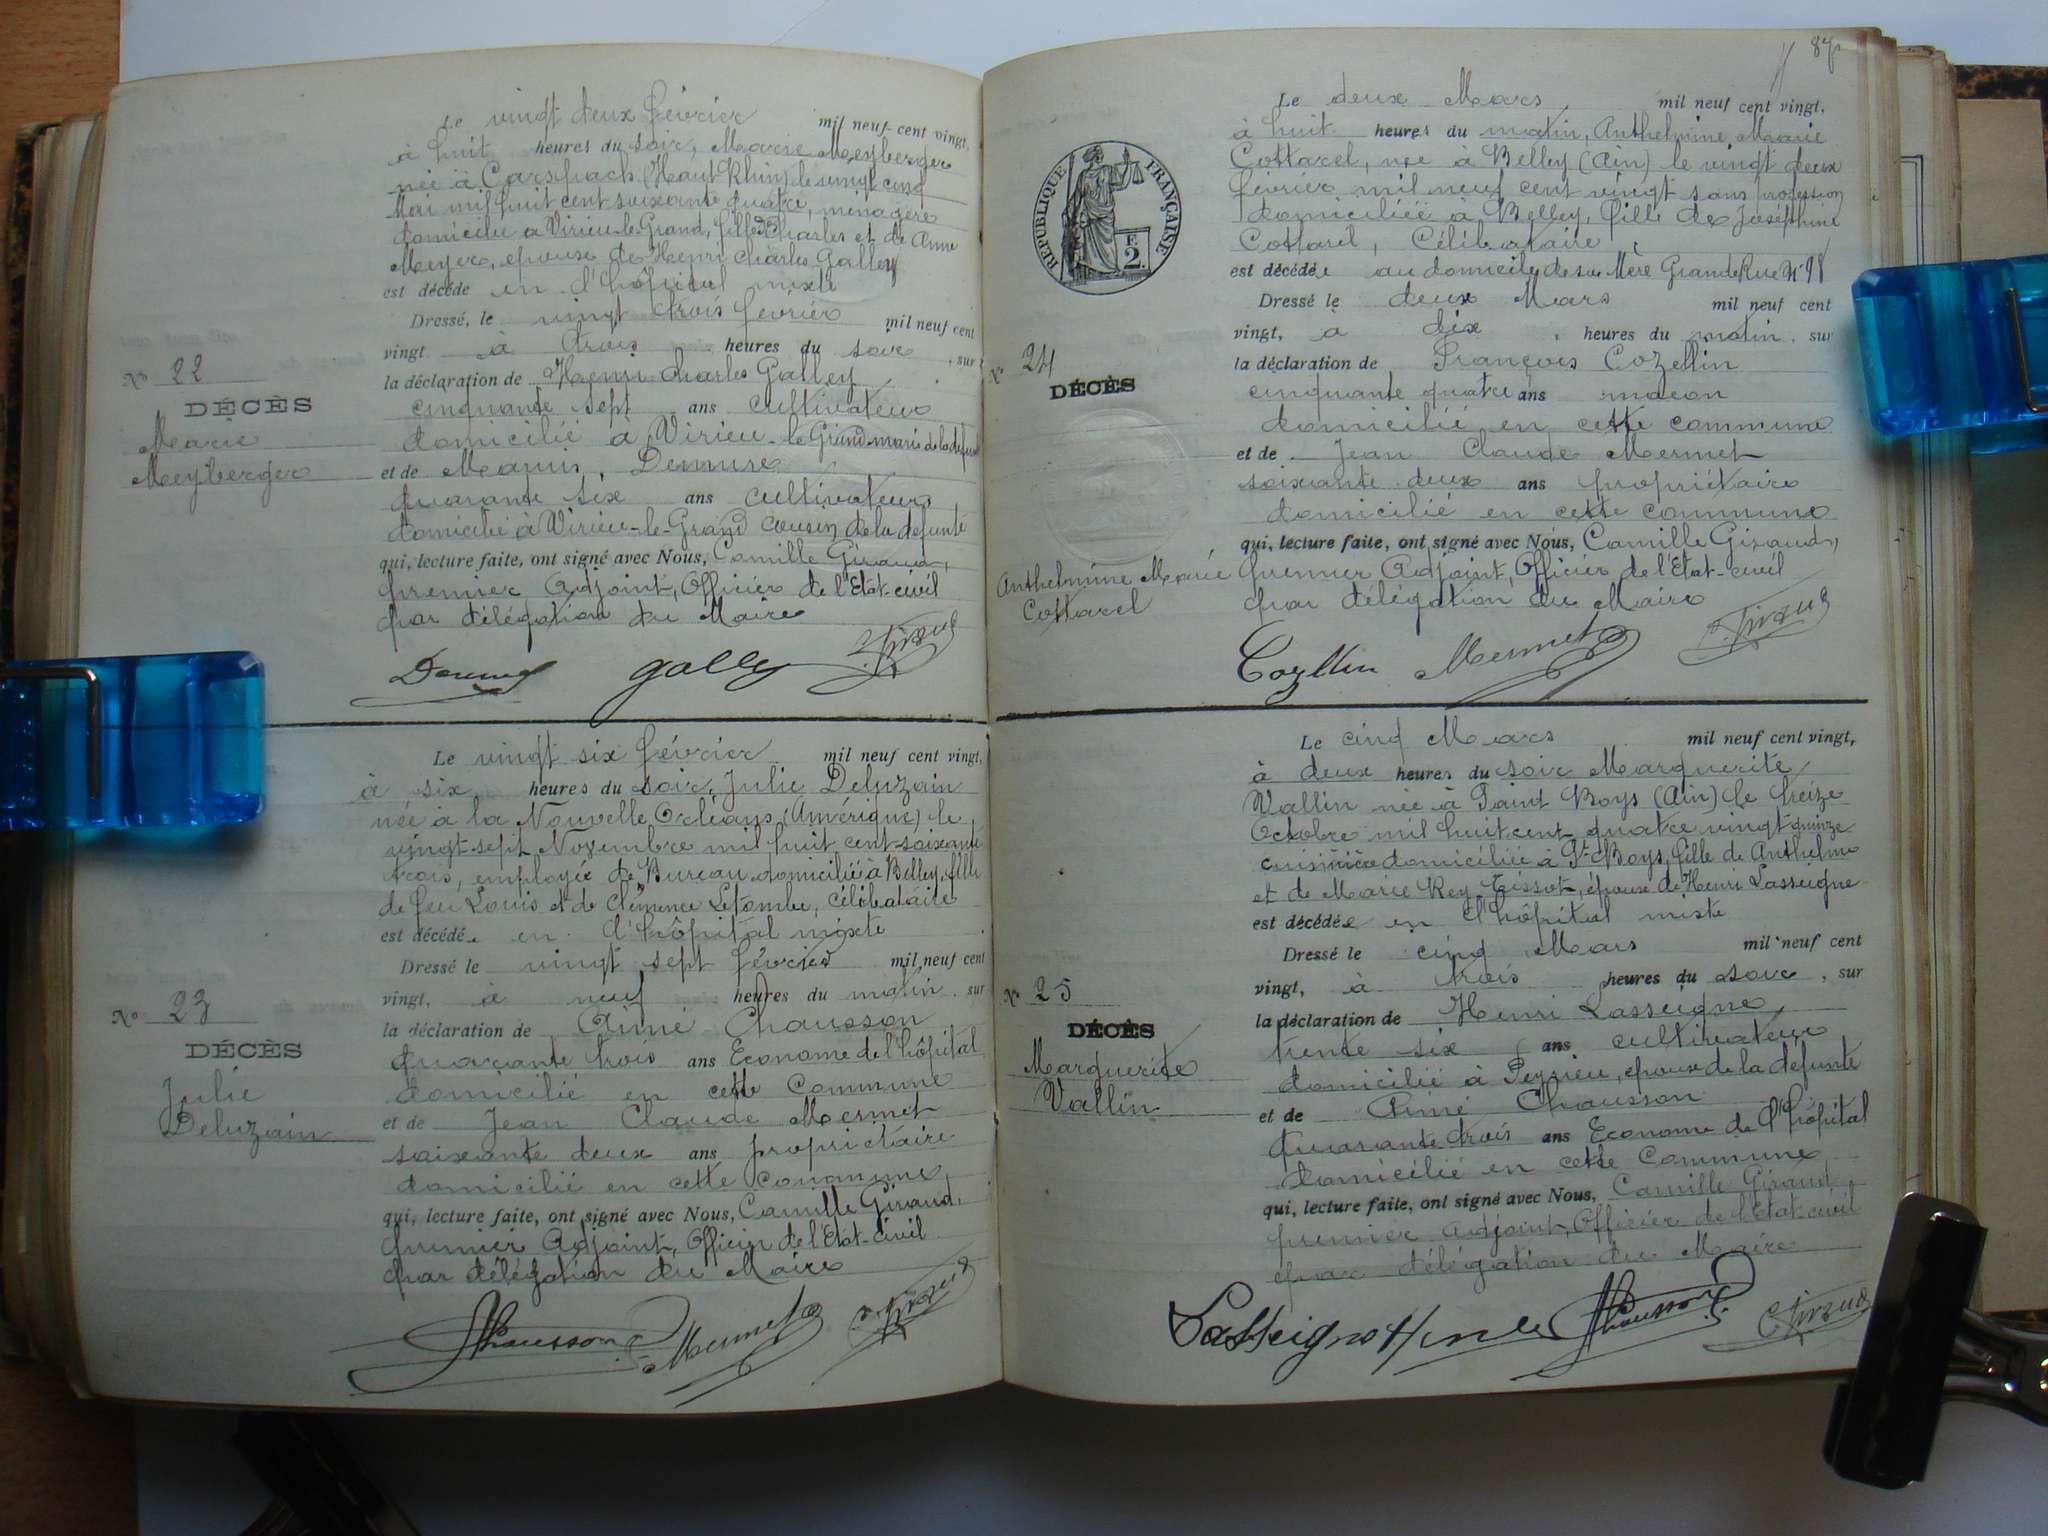 Le vingt deux février mil neuf cent vingt,
à huit heures du soir, Marie Meyberger
née à Carspach (Haut Rhin) le vingt cinq
Mai mil huit cent soixante quatre, ménagère
domiciliée à Virieu-le-Grand, fille de Charles et de Anne
Meyer, épouse de Henri Charles Galley
est décédé en l'hôpital mixte
Dressé, le vingt trois février mil neuf cent
vingt à trois heures du soir, sur
la déclaration de Henri Charles Galley
cinquante sept ans cultivateur
domicilié à Virieu-le-Grand mari de la défunte
et de Demure
quarante six ans cultivateur
domicilié à Virieu-le-Grand cousin de la défunte
qui, lecture faite, ont signé avec Nous, Camille Giraud,
premier Adjoint, Officier de l'Etat-civil
par délégation du Maire
N° 22
DÉCÈS
Marie
Meyberger
Galley Giraud
Le vingt six février mil neuf cent vingt,
à six heures du soir, Julie Deluzain
née à la Nouvelle Orléans (Amérique) le
vingt-sept Novembre mil huit cent soixante
trois, employée de Bureau domiciliée à Belley, fille
de feu Louis et de Clémence Letombe, célibataire
est décédée en l'hôpital mixte
Dressé le vingt sept février mil neuf cent
vingt, à neuf heures du matin, sur
la déclaration de Aimé Chausson
quarante trois ans Econome de l'hôpital
domicilié en cette Commune
et de Jean Claude Mermet
soixante deux ans propriétaire
domicilié en cette Commune,
qui, lecture faite, ont signé avec Nous, Camille Giraud,
premier Adjoint, Officier de l'Etat-civil
par délégation du Maire
N° 23
DÉCÈS
Julie
Deluzain
Chausson Mermet Giraud
87
RÉPUBLIQUE FRANÇAISE
F.
2.
Le deux Mars mil neuf cent vingt,
à huit heures du matin, Anthelmine Marie
Cottarel, née à Belley (Ain) le vingt deux
février mil neuf cent vingt sans profession
domiciliée à Belley, fille de Joséphine
Cottarel, Célibataire
est décédée au domicile de sa Mère Grande Rue N° 98
Dressé le deux Mars mil neuf cent
vingt, à dix heures du matin, sur
la déclaration de François Cozellin
cinquante quatre ans maçon
domicilié en cette commune
et de Jean Claude Mermet
soixante deux ans propriétaire
domicilié en cette commune
qui, lecture faite, ont signé avec Nous, Camille Giraud,
premier Adjoint, Officier de l'Etat-civil
par délégation du Maire
N° 24
DÉCÈS
Anthelmine Marie
Cottarel
Cozllin Mermet Giraud
Le cinq Mars mil neuf cent vingt,
à deux heures du soir Marguerite
Vallin née à Saint Boys (Ain) le treize
Octobre mil huit cent quatre vingt quinze
cuisinière domiciliée à St Boys, fille de Anthelme
et de Marie Rey Tissot, épouse de Henri Lasseigne
est décédée en l'hôpital mixte
Dressé le cinq Mars mil neuf cent
vingt, à trois heures du soir, sur
la déclaration de Henri Lasseigne,
trente six ans cultivateur
domicilié à Peyrieu, époux de la défunte
et de Aimé Chausson
quarante trois ans Econome de l'hôpital
domicilié en cette Commune
qui, lecture faite, ont signé avec Nous, Camille Giraud,
premier Adjoint, Officier de l'Etat-civil
par délégation du Maire
N° 25
DÉCÈS
Marguerite
Vallin
Chausson Giraud